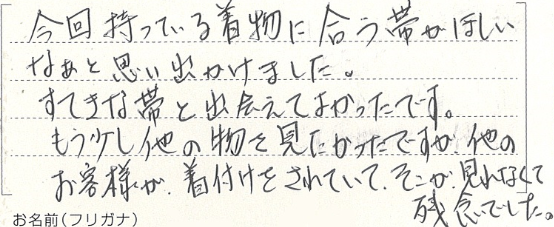 今回持っている着物に合う帯がほしい
なぁと思い出かけました。
すてきな帯と出会えてよかったです。
もう少し他の物を見たかったですが、他の
お客様が、着付けをされていて、そこが、見れなくて
残念でした。
お名前(フリガナ)